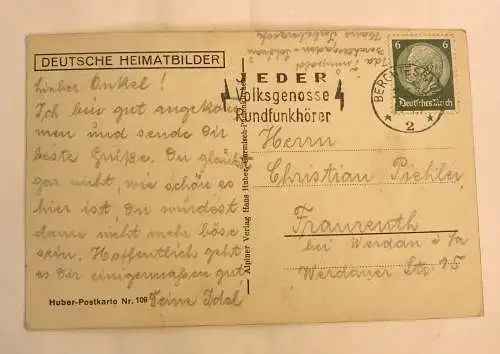 DEUTSCHE HEIMATBILDER
Lieber Onkel!
Ich bin gut angekom
men und sende Dir
beste Grüße. Du glaubst
gar nicht, wie schön es
hier ist, Du würdest
dann nicht mehr böse
sein. Hoffentlich geht
es Dir einigermaßen gut
Deine Idel
Huber-Postkarte Nr. 109
Alpiner Verlag Hans Huber
JEDER
Volksgenosse
Rundfunkhörer
BERCHTESGADEN
2
6 6
Deutsches Reich
Herrn
Christian Pichler
Fraureuth
bei Werdau i/Sa
Werdauer Str. 95